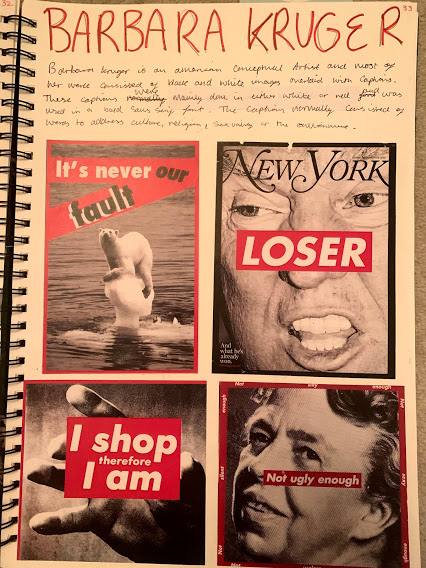 32
33
BARBARA KRUGER
Barbara Kruger is an american conceptual Artist and most of
her work consisted of black and white images overlaid with Captions.
These captions were mainly done in either white or red and was
used in a bold Sans Serif font. The Caption normally Consisted of
words to address culture, religion, or the
It's never our
fault
NEW YORK
LOSER
And
what he's
already
won.
I shop
therefore
I am
Not enough
enough
Not ugly enough
Not
enough